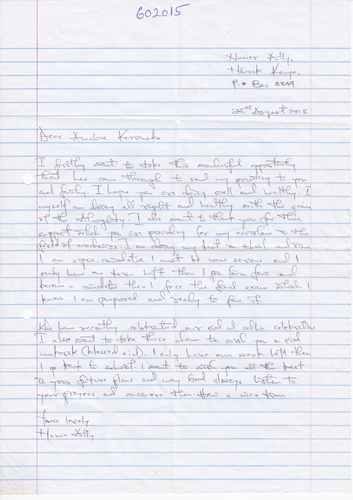 602015
Kenya
P.o Box
25th August 2018
Dear
I firstly want to take this wonderful opportunity
that has come through to send my greeting to you
and family. I hope you are doing well and healthy. I
myself am doing all right and healthy with the grace
of the Almighty. I also want to thank you for the
support which you are providing for my education in the
field of academics. I am doing my best in school and since
I am a candidate I must be very serious and I
only have one term left then I
a candidate then I face the final exam which I
know I am prepared and ready to for it.
We have recently celebrated our eid al adha celebration
I also want to take this chance to wish you a eid
mubarak (blessed eid). I only have one week left then
I go back to school. I want to wish you all the best
in your future plans and may God always listen to
your prayers and answers them. Have a nice time
Yours